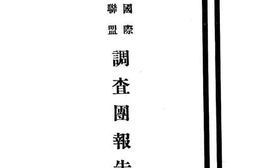 國際
聯盟
調查團報告